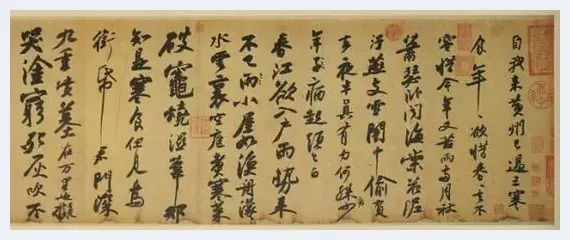 自我來黃州已過三寒
食年々欲惜春々去不
容惜今年又苦雨兩月秋
蕭瑟臥聞海棠花泥
汙燕支雪闇中偷負
去夜半真有力何殊少
年子病起頭已白
春江欲入戶雨勢來
不已雨小屋如漁舟濛々
水雲裏空庖煮寒菜
破竈燒濕葦那
知是寒食但見烏
銜帋君門深
九重墳墓在万里也擬
哭塗窮死灰吹不